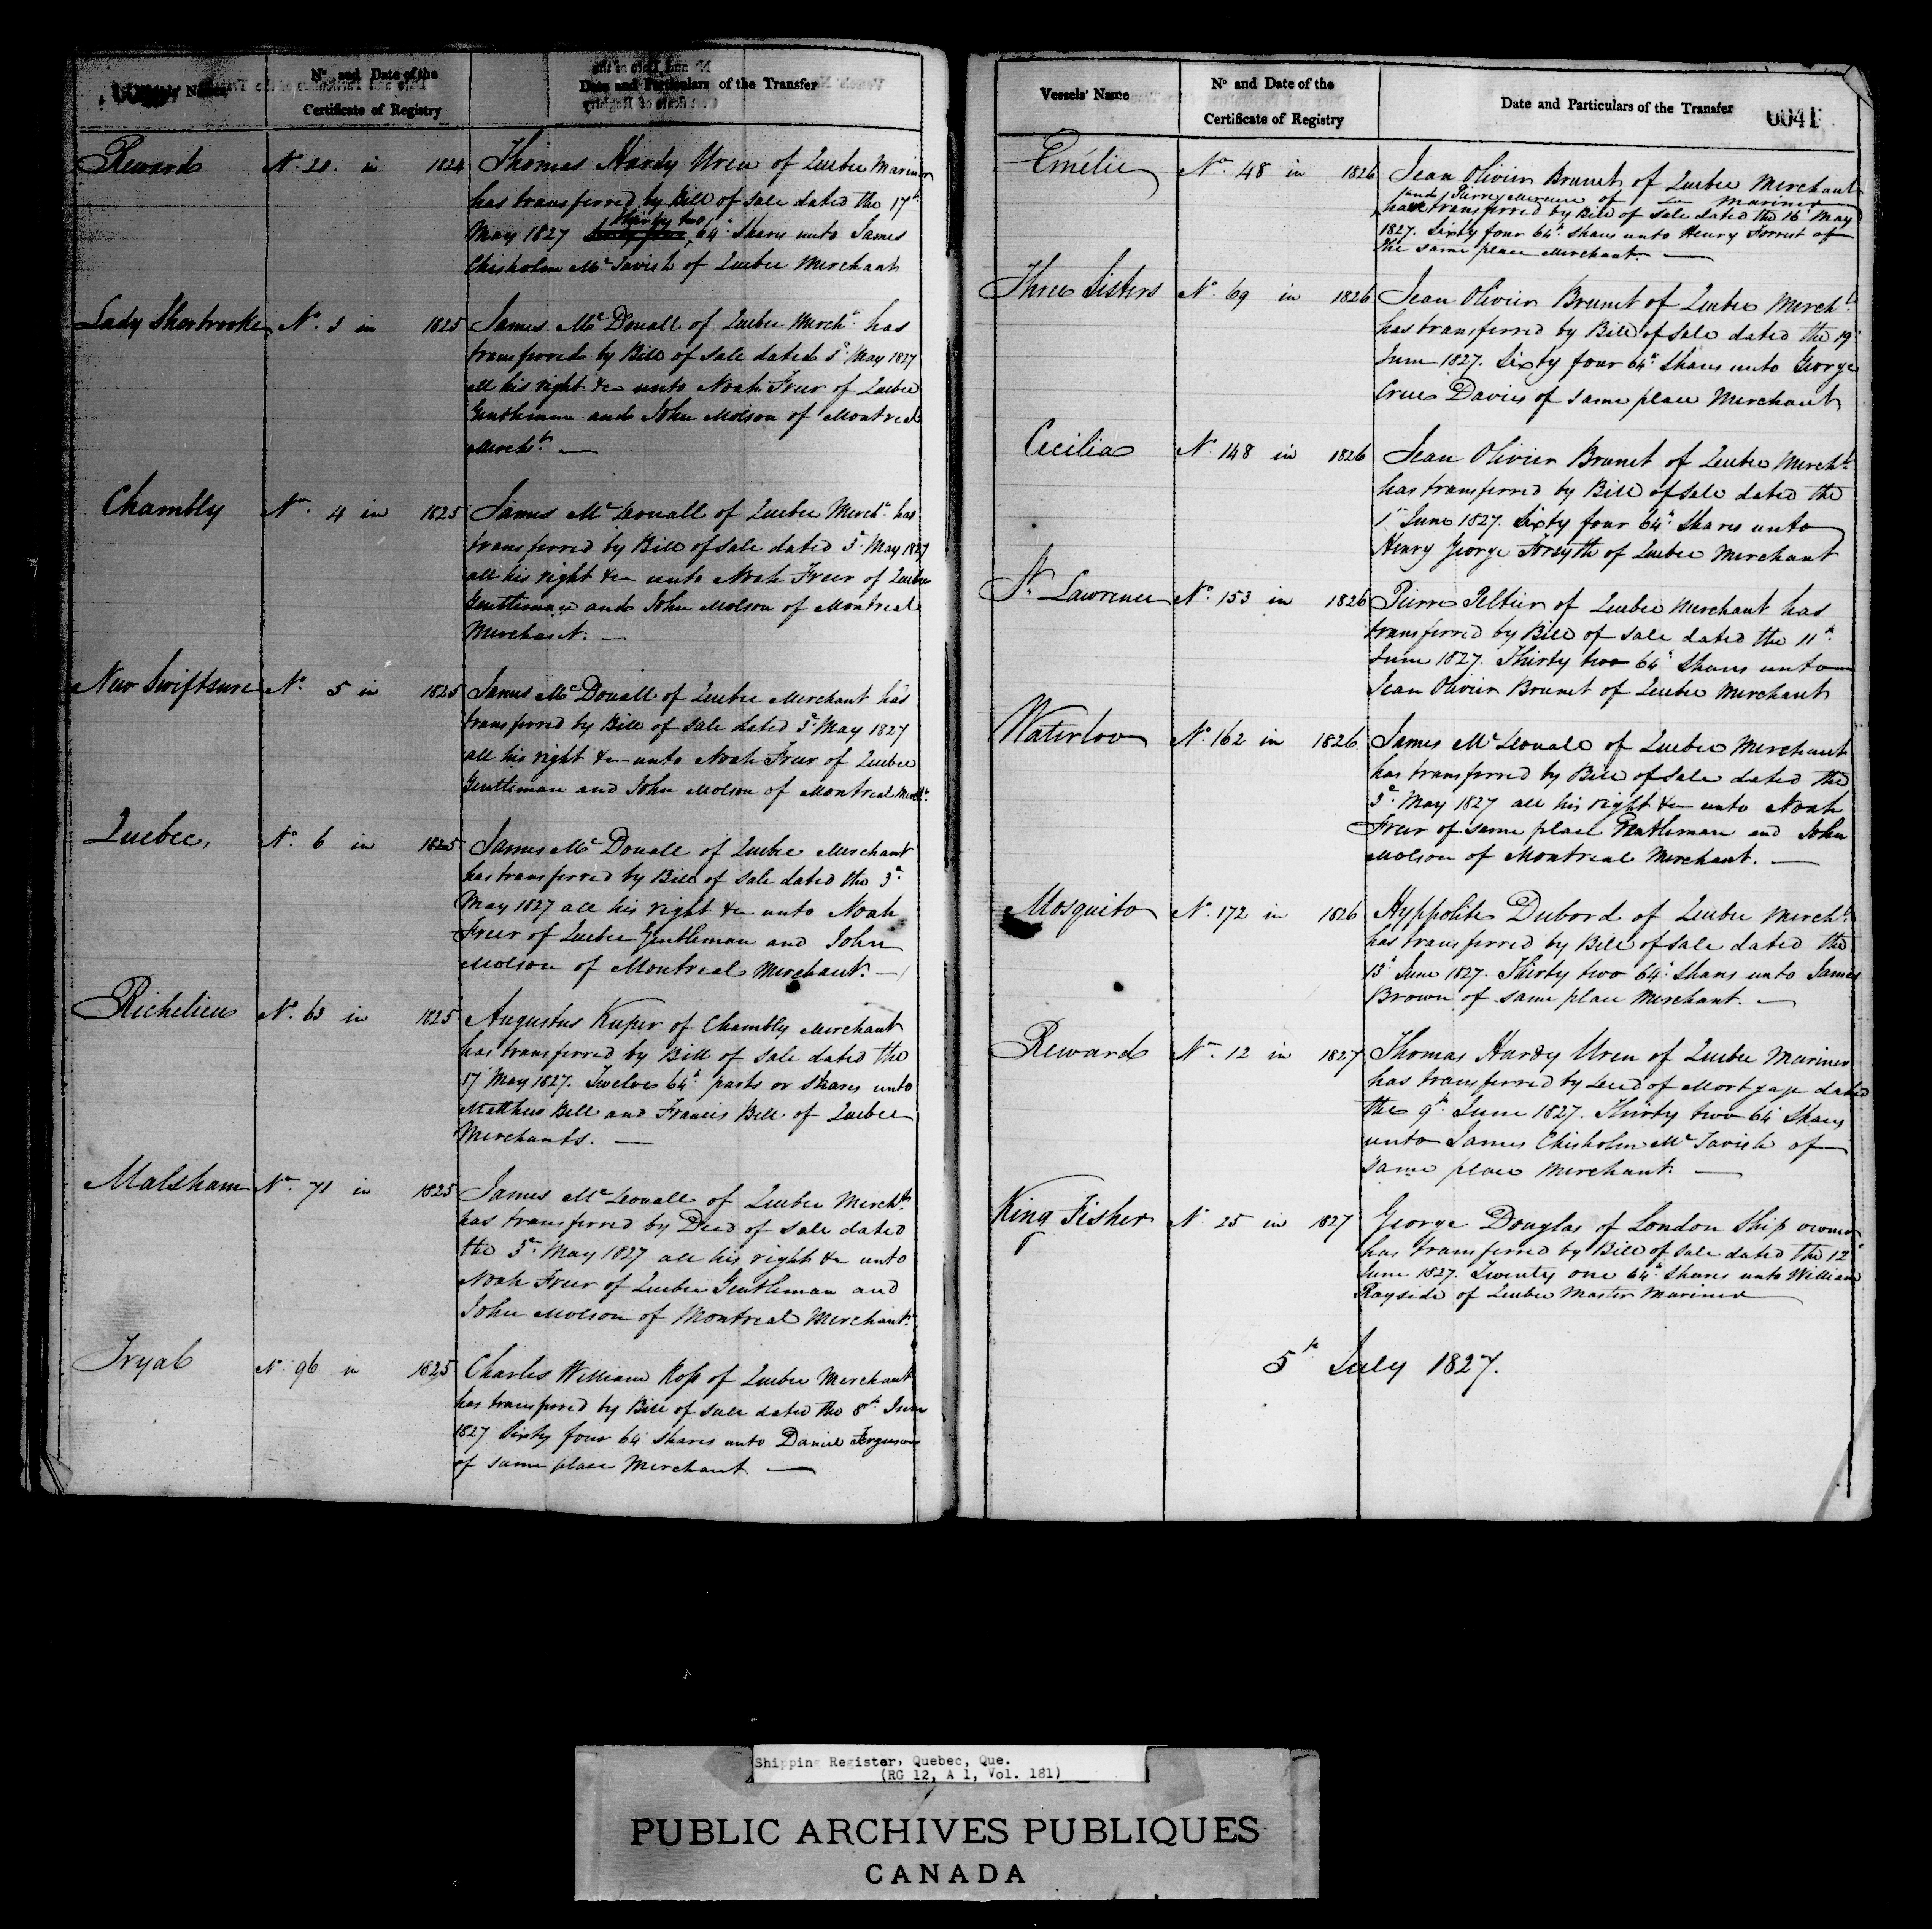 Vessels' Name
No and Date of the
Certificate of Registry
Date and Particulars of the Transfer
Reward No. 20. in 1824 Thomas Hardy Uren of Quebec Mariner
has transferred by Bill of Sale dated the 17th
thirty two
May 1827 64th Shares unto James
Chisholm McTavish of Quebec Merchant
Lady Sherbrooke No. 3 in 1825 James McDouall of Quebec Mercht. has
transferred by Bill of Sale dated 3d May 1827
all his right &c unto Noah Freer of Quebec
Gentleman and John Molson of Montreal
Mercht. —
Chambly No. 4 in 1825 James McDouall of Quebec Mercht. has
transferred by Bill of Sale dated 3d May 1827
all his right &c unto Noah Freer of Quebec
Gentleman and John Molson of Montreal
Merchant. —
New Swiftsure No. 5 in 1825 James McDouall of Quebec Merchant has
transferred by Bill of Sale dated 3d May 1827
all his right &c unto Noah Freer of Quebec
Gentleman and John Molson of Montreal Mercht.
Quebec, No. 6 in 1825 James McDouall of Quebec Merchant
has transferred by Bill of Sale dated the 3d
May 1827 all his right &c unto Noah
Freer of Quebec Gentleman and John
Molson of Montreal Merchant. —
Richelieu No. 63 in 1825 Augustus Kuper of Chambly Merchant
has transferred by Bill of Sale dated the
17 May 1827. Twelve 64th parts or Shares unto
Matthew Bell and Francis Bell of Quebec
Merchants. —
Malsham No. 71 in 1825 James McDouall of Quebec Mercht.
has transferred by Deed of Sale dated
the 3d May 1827 all his right &c unto
Noah Freer of Quebec Gentleman and
John Molson of Montreal Merchant.
Tryal No. 96 in 1825 Charles William Ross of Quebec Merchant
has transferred by Bill of Sale dated the 8th June
1827 Sixty four 64th Shares unto Daniel Ferguson
of same place Merchant —
Vessels' Name
No and Date of the
Certificate of Registry
Date and Particulars of the Transfer
0041
Emélie No. 48 in 1826 Jean Olivier Brunet of Quebec Merchant
and Pierre of Mariner
have transferred by Bill of Sale dated the 16 May
1827. Sixty four 64th Shares unto Henry Forrest of
the same place Merchant. —
Three Sisters No. 69 in 1826 Jean Olivier Brunet of Quebec Mercht.
has transferred by Bill of Sale dated the 19
June 1827. Sixty four 64th Shares unto George
Crew Davies of same place Merchant
Cecilia No. 148 in 1826 Jean Olivier Brunet of Quebec Mercht.
has transferred by Bill of Sale dated the
1st June 1827. Sixty four 64th Shares unto
Henry George Forsyth of Quebec Merchant
St. Lawrence No. 153 in 1826 Pierre Peltier of Quebec Merchant has
transferred by Bill of Sale dated the 11th
June 1827. Thirty two 64th Shares unto
Jean Olivier Brunet of Quebec Merchant
Waterloo No. 162 in 1826 James McDouall of Quebec Merchant
has transferred by Bill of Sale dated the
3d May 1827 all his right &c unto Noah
Freer of same place Gentleman and John
Molson of Montreal Merchant. —
Mosquito No. 172 in 1826 Hyppolite Dubord of Quebec Mercht.
has transferred by Bill of Sale dated the
13th June 1827. Thirty two 64th Shares unto James
Brown of same place Merchant. —
Reward No. 12 in 1827 Thomas Hardy Uren of Quebec Mariner
has transferred by Deed of Mortgage dated
the 9th June 1827. Thirty two 64th Shares
unto James Chisholm McTavish of
same place Merchant. —
King Fisher No. 25 in 1827 George Douglas of London Ship owner
has transferred by Bill of Sale dated the 12th
June 1827. Twenty one 64th Shares unto William
Rayside of Quebec Master Mariner —
5th July 1827.
Shipping Register, Quebec, Que.
(RG 12, A 1, Vol. 181)
PUBLIC ARCHIVES PUBLIQUES
CANADA